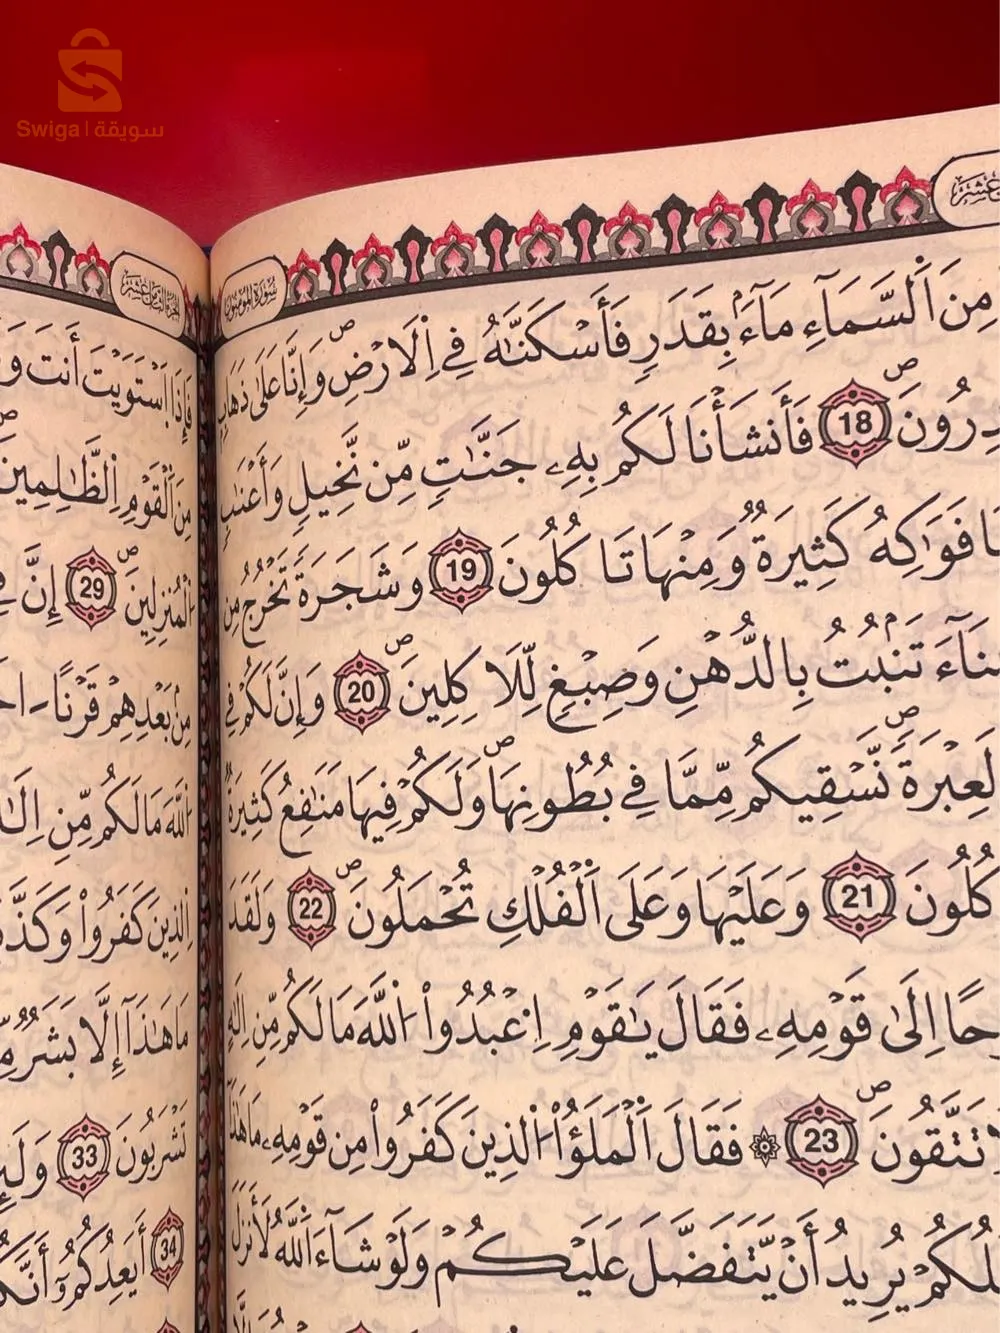 Swiga | سويقة
عشر
سورة المومنون
مِنَ اَ۬لسَّمَآءِ مَآءَۢ بِقَدَرٖ فَأَسْكَنَّٰهُ فِے اِ۬لَارْضِۖ وَإِنَّا عَلَىٰ ذَهَابِۢ
دِرُونَۖ 18 فَأَنشَأْنَا لَكُم بِهِۦ جَنَّٰتٖ مِّن نَّخِيلٖ وَأَعْنَٰبٖ
فَوَٰكِهُ كَثِيرَةٞ وَمِنْهَا تَاكُلُونَ 19 وَشَجَرَةٗ تَخْرُجُ مِن
نَآءَ تَنۢبُتُ بِالدُّهْنِ وَصِبْغٖ لِّلَاكِلِينَۖ 20 وَإِنَّ لَكُمْ فِے
لَعِبْرَةٗۖ نَّسْقِيكُم مِّمَّا فِے بُطُونِهَاۖ وَلَكُمْ فِيهَا مَنَٰفِعُ كَثِيرَةٞ
كُلُونَ 21 وَعَلَيْهَا وَعَلَى اَ۬لْفُلْكِ تُحْمَلُونَۖ 22 وَلَقَدَ
حاً اِلَىٰ قَوْمِهِۦ فَقَالَ يَٰقَوْمِ اِ۟عْبُدُواْ اُ۬للَّهَ مَا لَكُم مِّنِ اِلَٰهٍ
تَتَّقُونَۖ 23 ۞ فَقَالَ اَ۬لْمَلَؤُاْ اُ۬لذِينَ كَفَرُواْ مِن قَوْمِهِۦ مَا هَٰذَآ
لُكُمْ يُرِيدُ أَنْ يَّتَفَضَّلَ عَلَيْكُمْ وَلَوْ شَآءَ اَ۬للَّهُ لَأَنزَلَ
الجزء الثامن عشر
فَإِذَا اَ۪سْتَوَيْتَ أَنتَ
مِنَ اَ۬لْقَوْمِ اِ۬لظَّٰلِمِينَۖ
اُ۬لْمُنزِلِينَۖ 29 إِنَّ فِے
مِنۢ بَعْدِهِمْ قَرْناً
اُ۬للَّهَ مَا لَكُم مِّنِ اِلَٰهٍ
اَ۬لذِينَ كَفَرُواْ وَكَذَّ
مَا هَٰذَآ إِلَّا بَشَرٞ
تَشْرَبُونَ 33 وَلَئِ
34 أَيَعِدُكُمُۥٓ أَنَّكُ